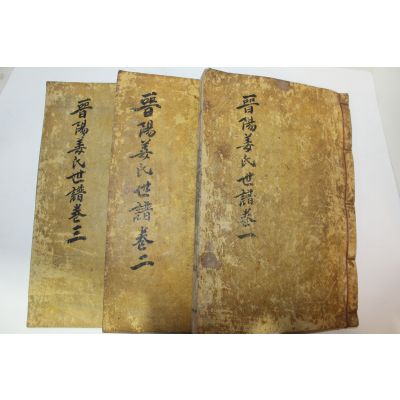 晉陽姜氏世譜卷一
晉陽姜氏世譜卷二
晉陽姜氏世譜卷三